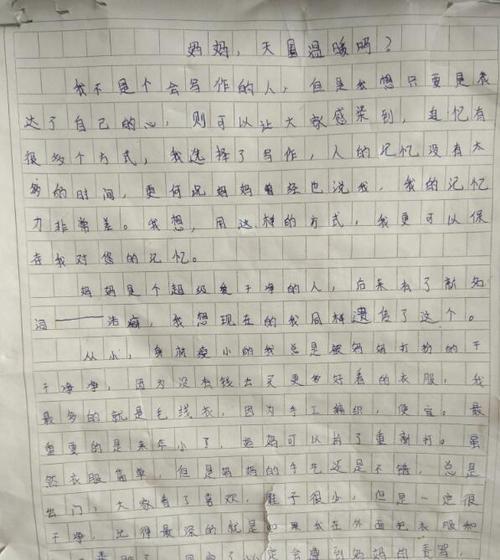 妈妈,天国温暖吗?
我不是个会写作的人,但是我想只要是表
达了自己的心,则可以让大家感染到,追忆有
很多个方式,我选择了写作,人的记忆没有太
多的时间,更何况妈妈曾经也说我,我的记忆
力非常差。我想,用这样的方式,我更可以保
存我对您的记忆。
妈妈是个超级爱干净的人,后来有了新名
词——洁癖,我想现在的我同样遗传了这个。
从小,身材瘦小的我总是被妈妈打扮的干
干净净,因为没有钱去买更多好看的衣服,我
最多的就是毛线衣,因为手工编织,便宜。最
重要的是来年小了,妈妈可以拆了重新打。虽
然衣服简单,但是妈妈的手艺还是不错,总是
出门,大家看了喜欢,鞋子很小,但是一定很
干净,记得最深的就是如果我在外面把衣服和